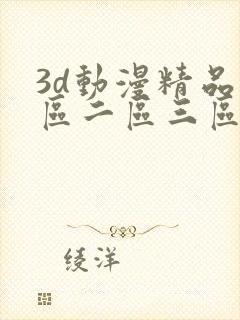 3d動漫精品
區二區三區
绫洋